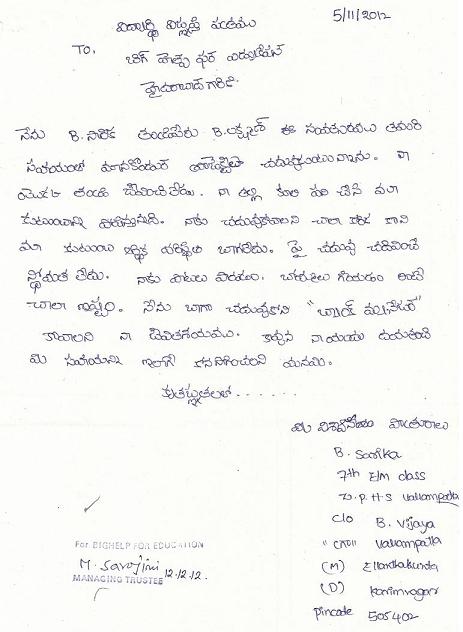 విద్యార్థి విజ్ఞప్తి పత్రము
5/11/2012
To,
బిగ్ హెల్ప్ ఫర్ ఎడ్యుకేషన్
హైదరాబాద్ గారికి
నేను B. సారిక తండ్రిపేరు B. లక్ష్మణ్ ఈ సంవత్సరము తమరి
సహాయంతో చదువుకుంటున్నాను. నా
యొక్క తండ్రి జీవించి లేడు. నా తల్లి కూలి పని చేసి మా
కుటుంబాన్ని పోషిస్తున్నది. నాకు చదువుకోవాలని చాలా కోరిక కాని
మా కుటుంబ ఆర్థిక పరిస్థితి బాగాలేదు. పై చదువు చదివించే
స్థోమత లేదు. నాకు పాటలు పాడడం, బొమ్మలు గీయడం అంటే
చాలా ఇష్టం. నేను బాగా చదువుకొని "బ్యాంక్ మేనేజర్"
కావాలని నా జీవితధ్యేయము. కావున నా యందు దయతలచి
మీ సహాయాన్ని ఇలాగే కొనసాగించాలని మనవి.
కృతజ్ఞతలతో......
మీ విశ్వసనీయ విద్యార్థురాలు
B. Sarika
7th E/M class
Z.P.H.S Vallampatla
C/o B. Vijaya
Vallampatla
(M) Ellanthakunda
(D) Karimnagar
Pincode 505402
For BIGHELP FOR EDUCATION
M. Sarojini 12.12.12.
MANAGING TRUSTEE